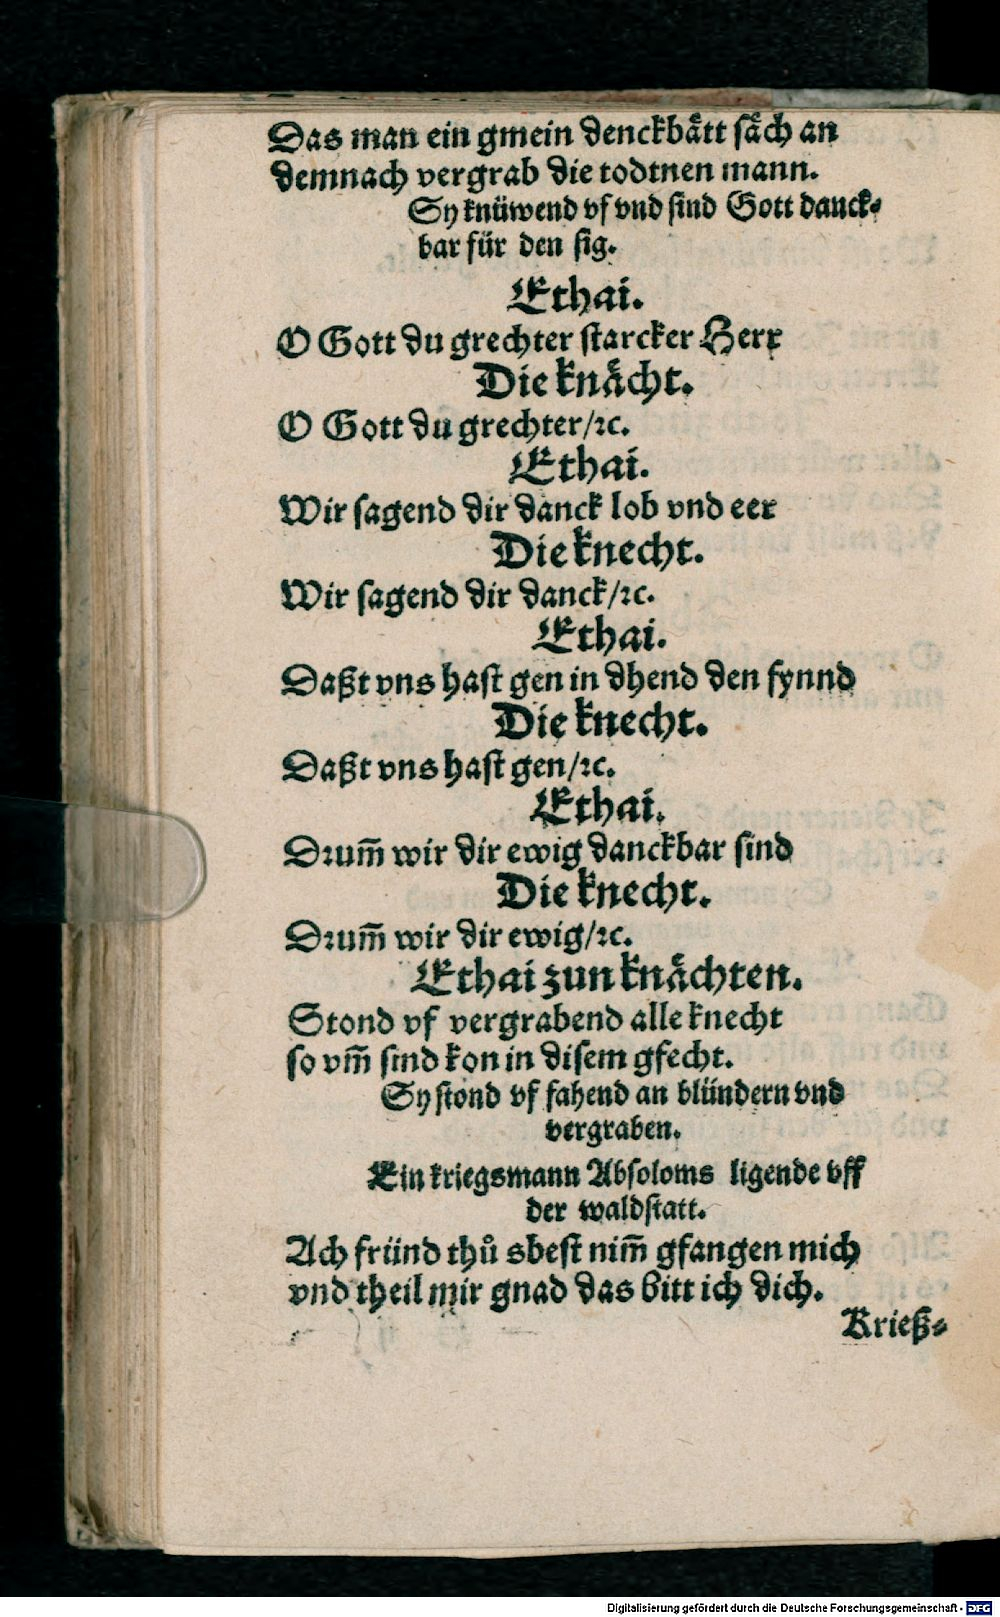 Das man ein gmein denckbaͤtt saͤch an
demnach vergrab die todtnen mann.
Sy knüwend vf vnd sind Gott danck⸗
bar für den sig.
Ethai.
O Gott du grechter starcker Herr
Die knaͤcht.
O Gott du grechter/ꝛc.
Ethai.
Wir sagend dir danck lob vnd eer
Die knecht.
Wir sagend dir danck/ꝛc.
Ethai.
Daßt vns hast gen in dhend den fynnd
Die knecht.
Daßt vns hast gen/ꝛc.
Ethai.
Drum̃ wir dir ewig danckbar sind
Die knecht.
Drum̃ wir dir ewig/ꝛc.
Ethai zun knaͤchten.
Stond vf vergrabend alle knecht
so vm̃ sind kon in disem gfecht.
Sy stond vf fahend an blündern vnd
vergraben.
Ein kriegsmann Absoloms ligende vff
der waldstatt.
Ach fründ thuͦ sbest nim̃ gfangen mich
vnd theil mir gnad das bitt ich dich.
Krieß⸗
Digitalisierung gefördert durch die Deutsche Forschungsgemeinschaft - DFG